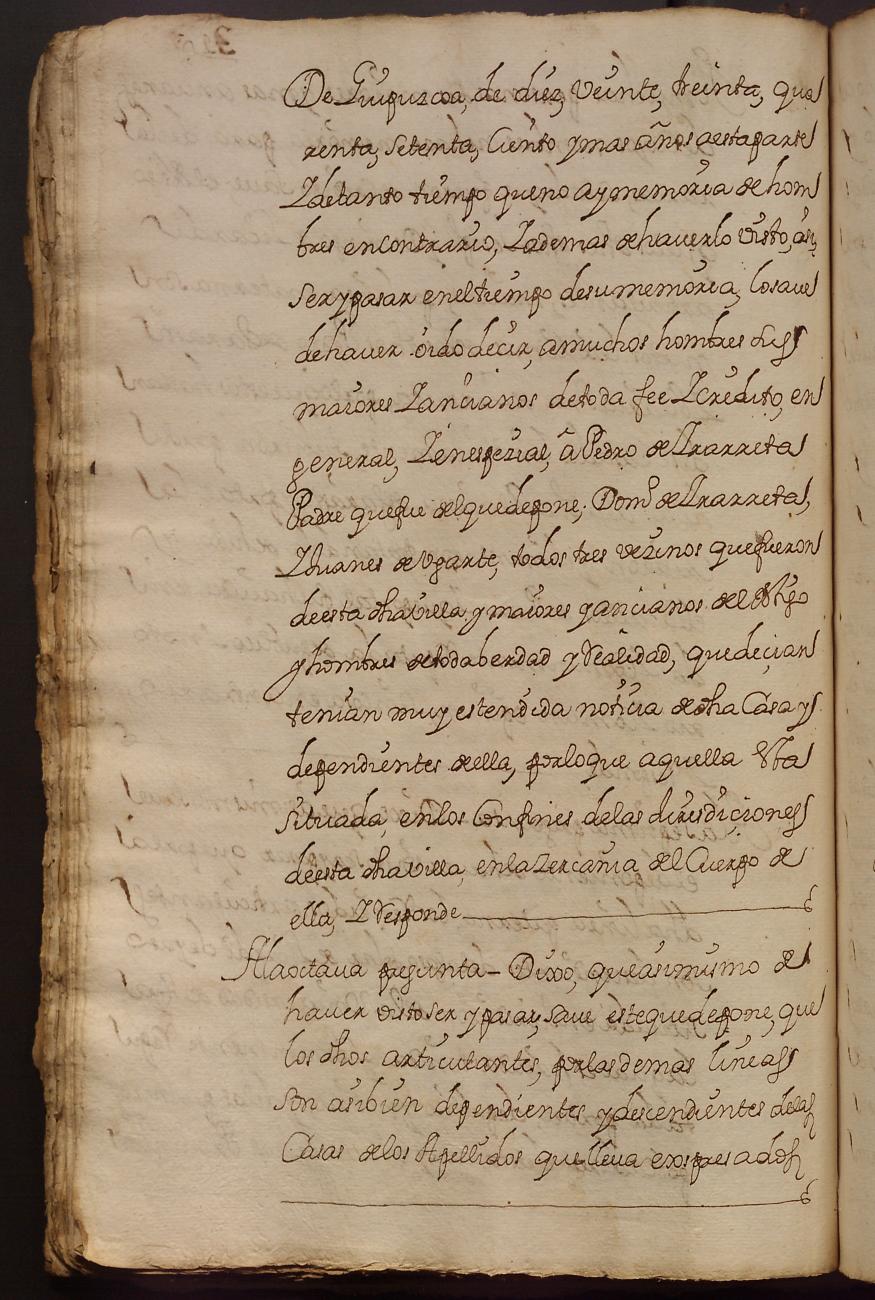 De Guipuzcoa, de diez, veinte, treinta, qua
renta, setenta, Ciento ymas años aestaparte
Ydetanto tiempo queno aymemoria de hom
bres encontrario, Yademas dehaverlo visto, asi,
Serypasar eneltiempo desumemoria, losave
dehaver oido decir, amuchos hombres sus
maiores Yancianos detoda fee Ycredito, en
general, Yenespezial, â Pedro de Yrarreta
Padre quefue delquedepone; Domº de Yrarreta,
YJuanes de Ugarte, todos tres vezinos quefueron
deesta dha villa y maiores yancianos del
yhombres detodaberdad y Realidad, quedecian
tenian muy estendida noticia de dha Casa y
dependientes della, porloque aquella esta
situada, enlos Confines delas Jurisdiçiones
deesta dha villa, enlaZercania del Cuerpo de
ella, YResponde
Alaoctava pregunta- Dixo, queasimismo de
haver visto ser ypasar, save estequedepone, que
los dhos articulantes, porlasdemas lineas
son asibien dependientes ydescendientes delas
Casas delos Apellidos quelleva expresados